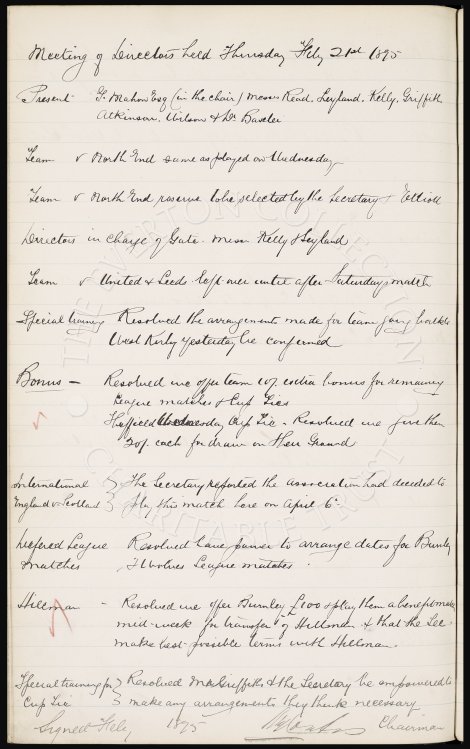 Meeting of Directors held Thursday Feby 21st 1895
Present - G. Mahon Esq (in the chair) Messrs Read, Leyland, Kelly, Griffith
Atkinson, Wilson & Dr Baxter
Team v North End same as played on Wednesday
Team v North End reserve to be selected by the Secretary & Elliott
Directors in charge of Gate. Messrs Kelly & Leyland
Team v United & Leeds left over until after Saturdays match
Special training Resolved the arrangements made for team going back to
West Kirby yesterday be confirmed
Bonus - Resolved we offer team 10/- extra bonus for remaining
League matches & Cup Ties
Sheffield Wednesday Cup Tie - Resolved we give them
20/- each for draw on their Ground
International } The Secretary reported the association had decided to
England v Scotland } play this match here on April 6
Deferred League Resolved have power to arrange dates for Burnley
Matches & Wolves League matches.
Hillman - Resolved we offer Burnley £100 & play them a benefit match
mid-week for transfer of Hillman & that the Sec
make best possible terms with Hillman.
Special training for } Resolved Mr Griffiths & the Secretary be empowered to
Cup Tie } make any arrangements they think necessary
Signed Feby 1895 Chairman
THE EVERTON COLLECTION
CHARITABLE TRUST